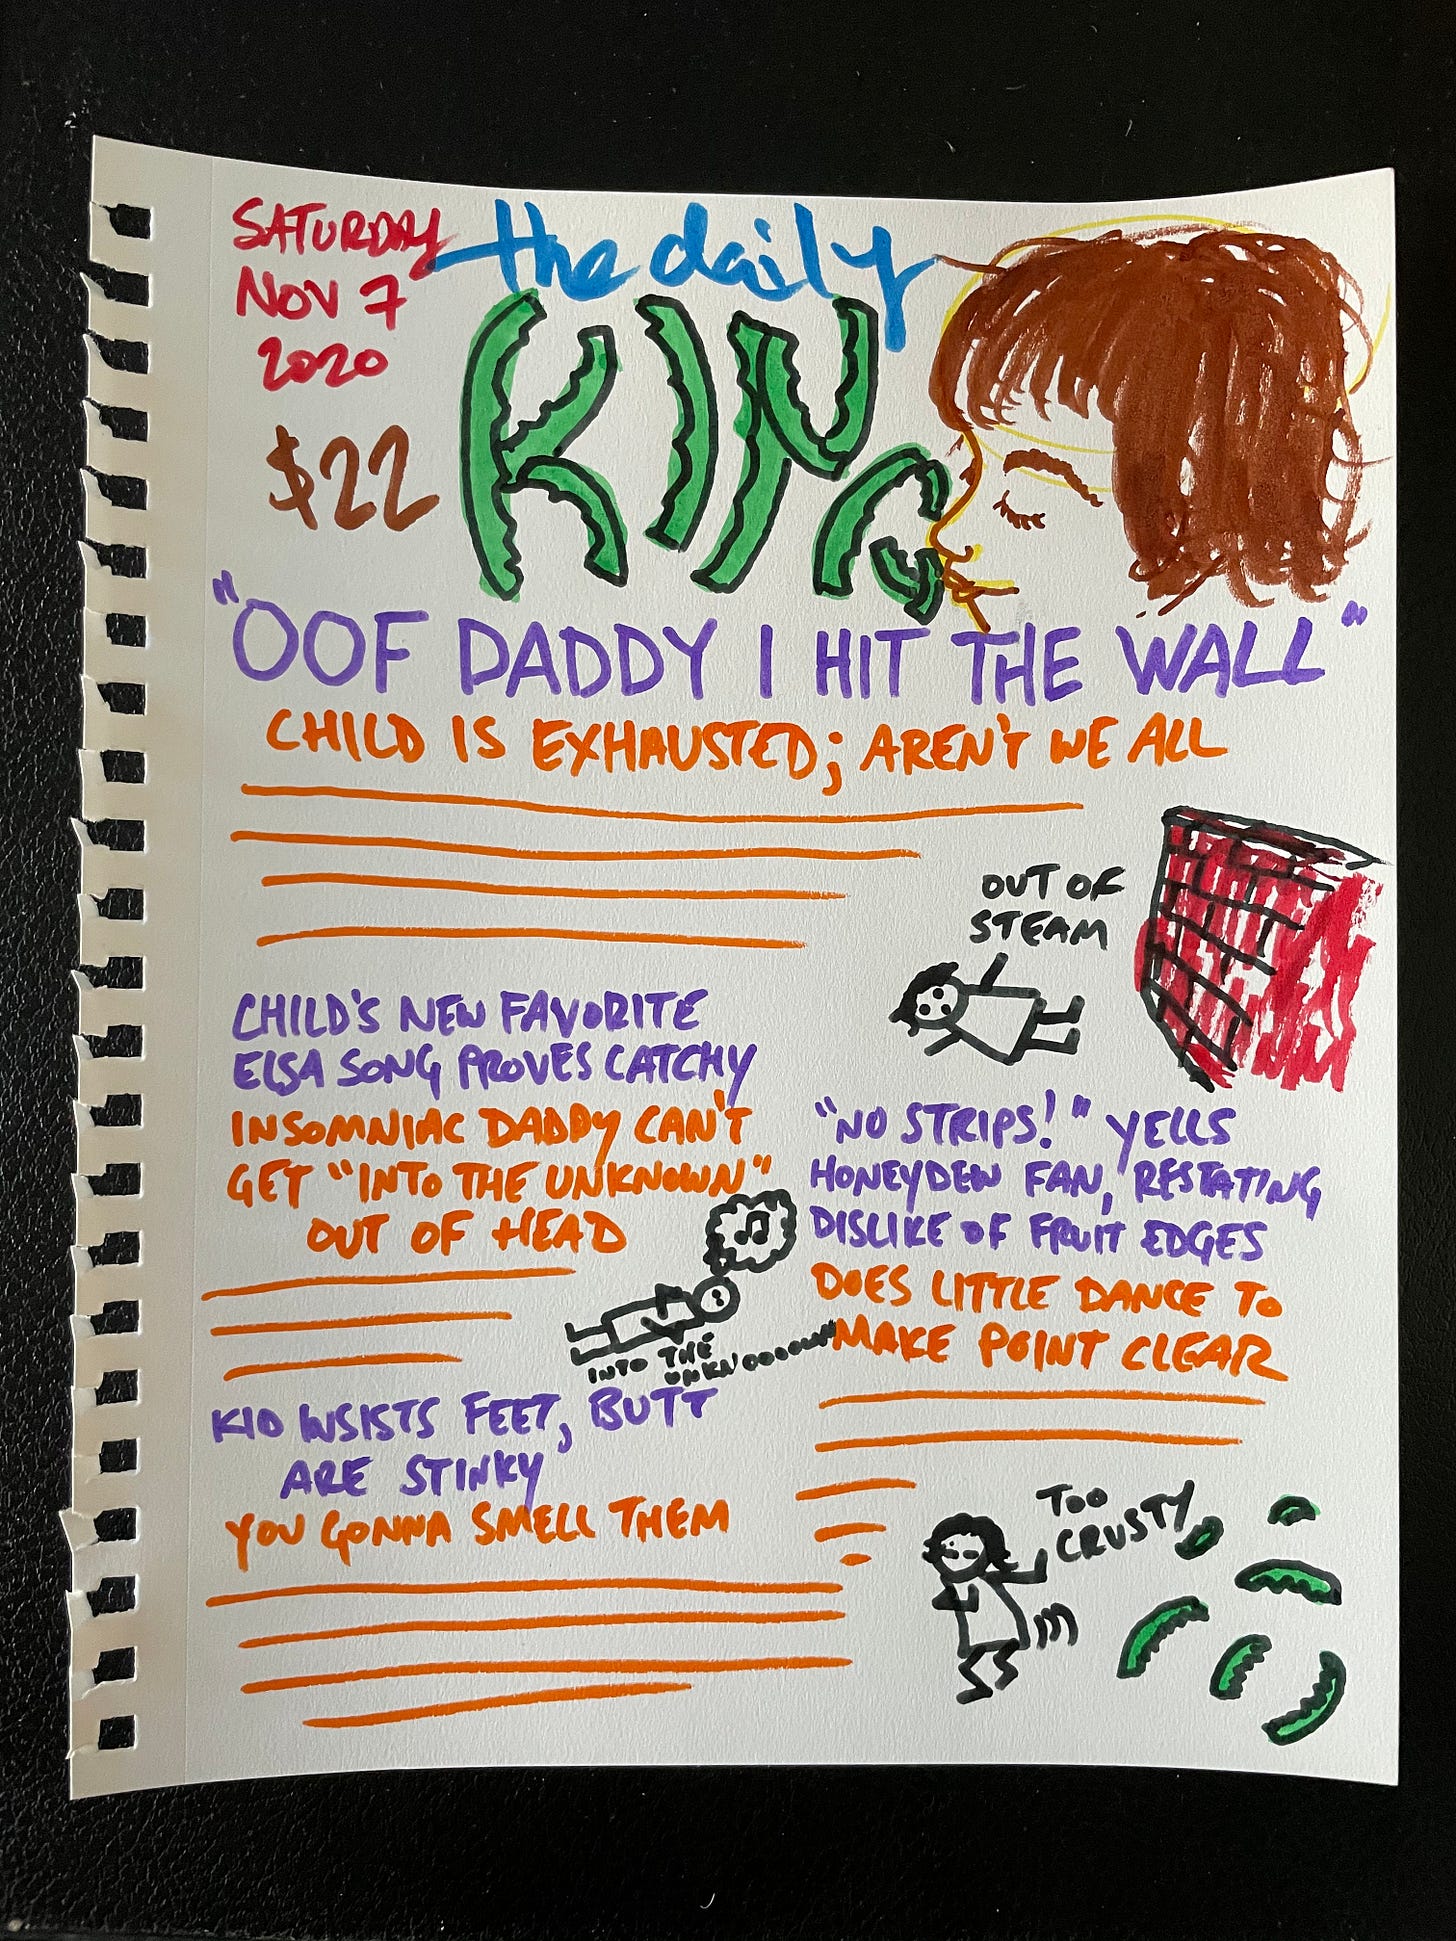 SATURDAY
NOV 7
2020
$22
the daily
KING
"OOF DADDY I HIT THE WALL"
CHILD IS EXHAUSTED; AREN'T WE ALL
OUT OF
STEAM
CHILD'S NEW FAVORITE
ELSA SONG PROVES CATCHY
INSOMNIAC DADDY CAN'T
GET "INTO THE UNKNOWN"
OUT OF HEAD
INTO THE
UNKNOOOOWN
KID INSISTS FEET, BUTT
ARE STINKY
YOU GONNA SMELL THEM
"NO STRIPS!" YELLS
HONEYDEW FAN, RESTATING
DISLIKE OF FRUIT EDGES
DOES LITTLE DANCE TO
MAKE POINT CLEAR
TOO
CRUSTY